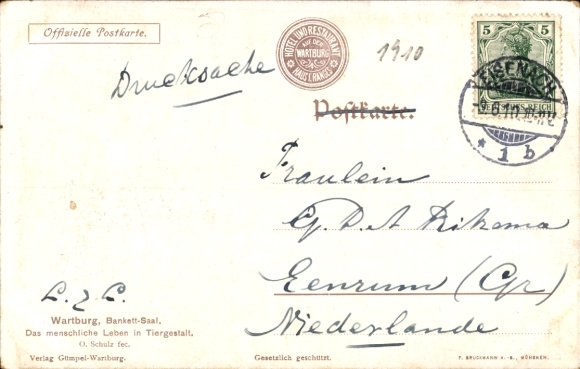 Offizielle Postkarte.
HOTEL UND RESTAURANT
AUF DER
WARTBURG
HANS LRANGES
1910
5 5
DEUTSCHES REICH
EISENACH
1 b
Drucksache
Postkarte.
Fräulein
Eenrum (Gr)
Niederlande
L. z L.
Wartburg, Bankett-Saal.
Das menschliche Leben in Tiergestalt.
O. Schulz fec.
Verlag Gümpel-Wartburg.
Gesetzlich geschützt.
F. BRUCKMANN A.-G., MÜNCHEN.